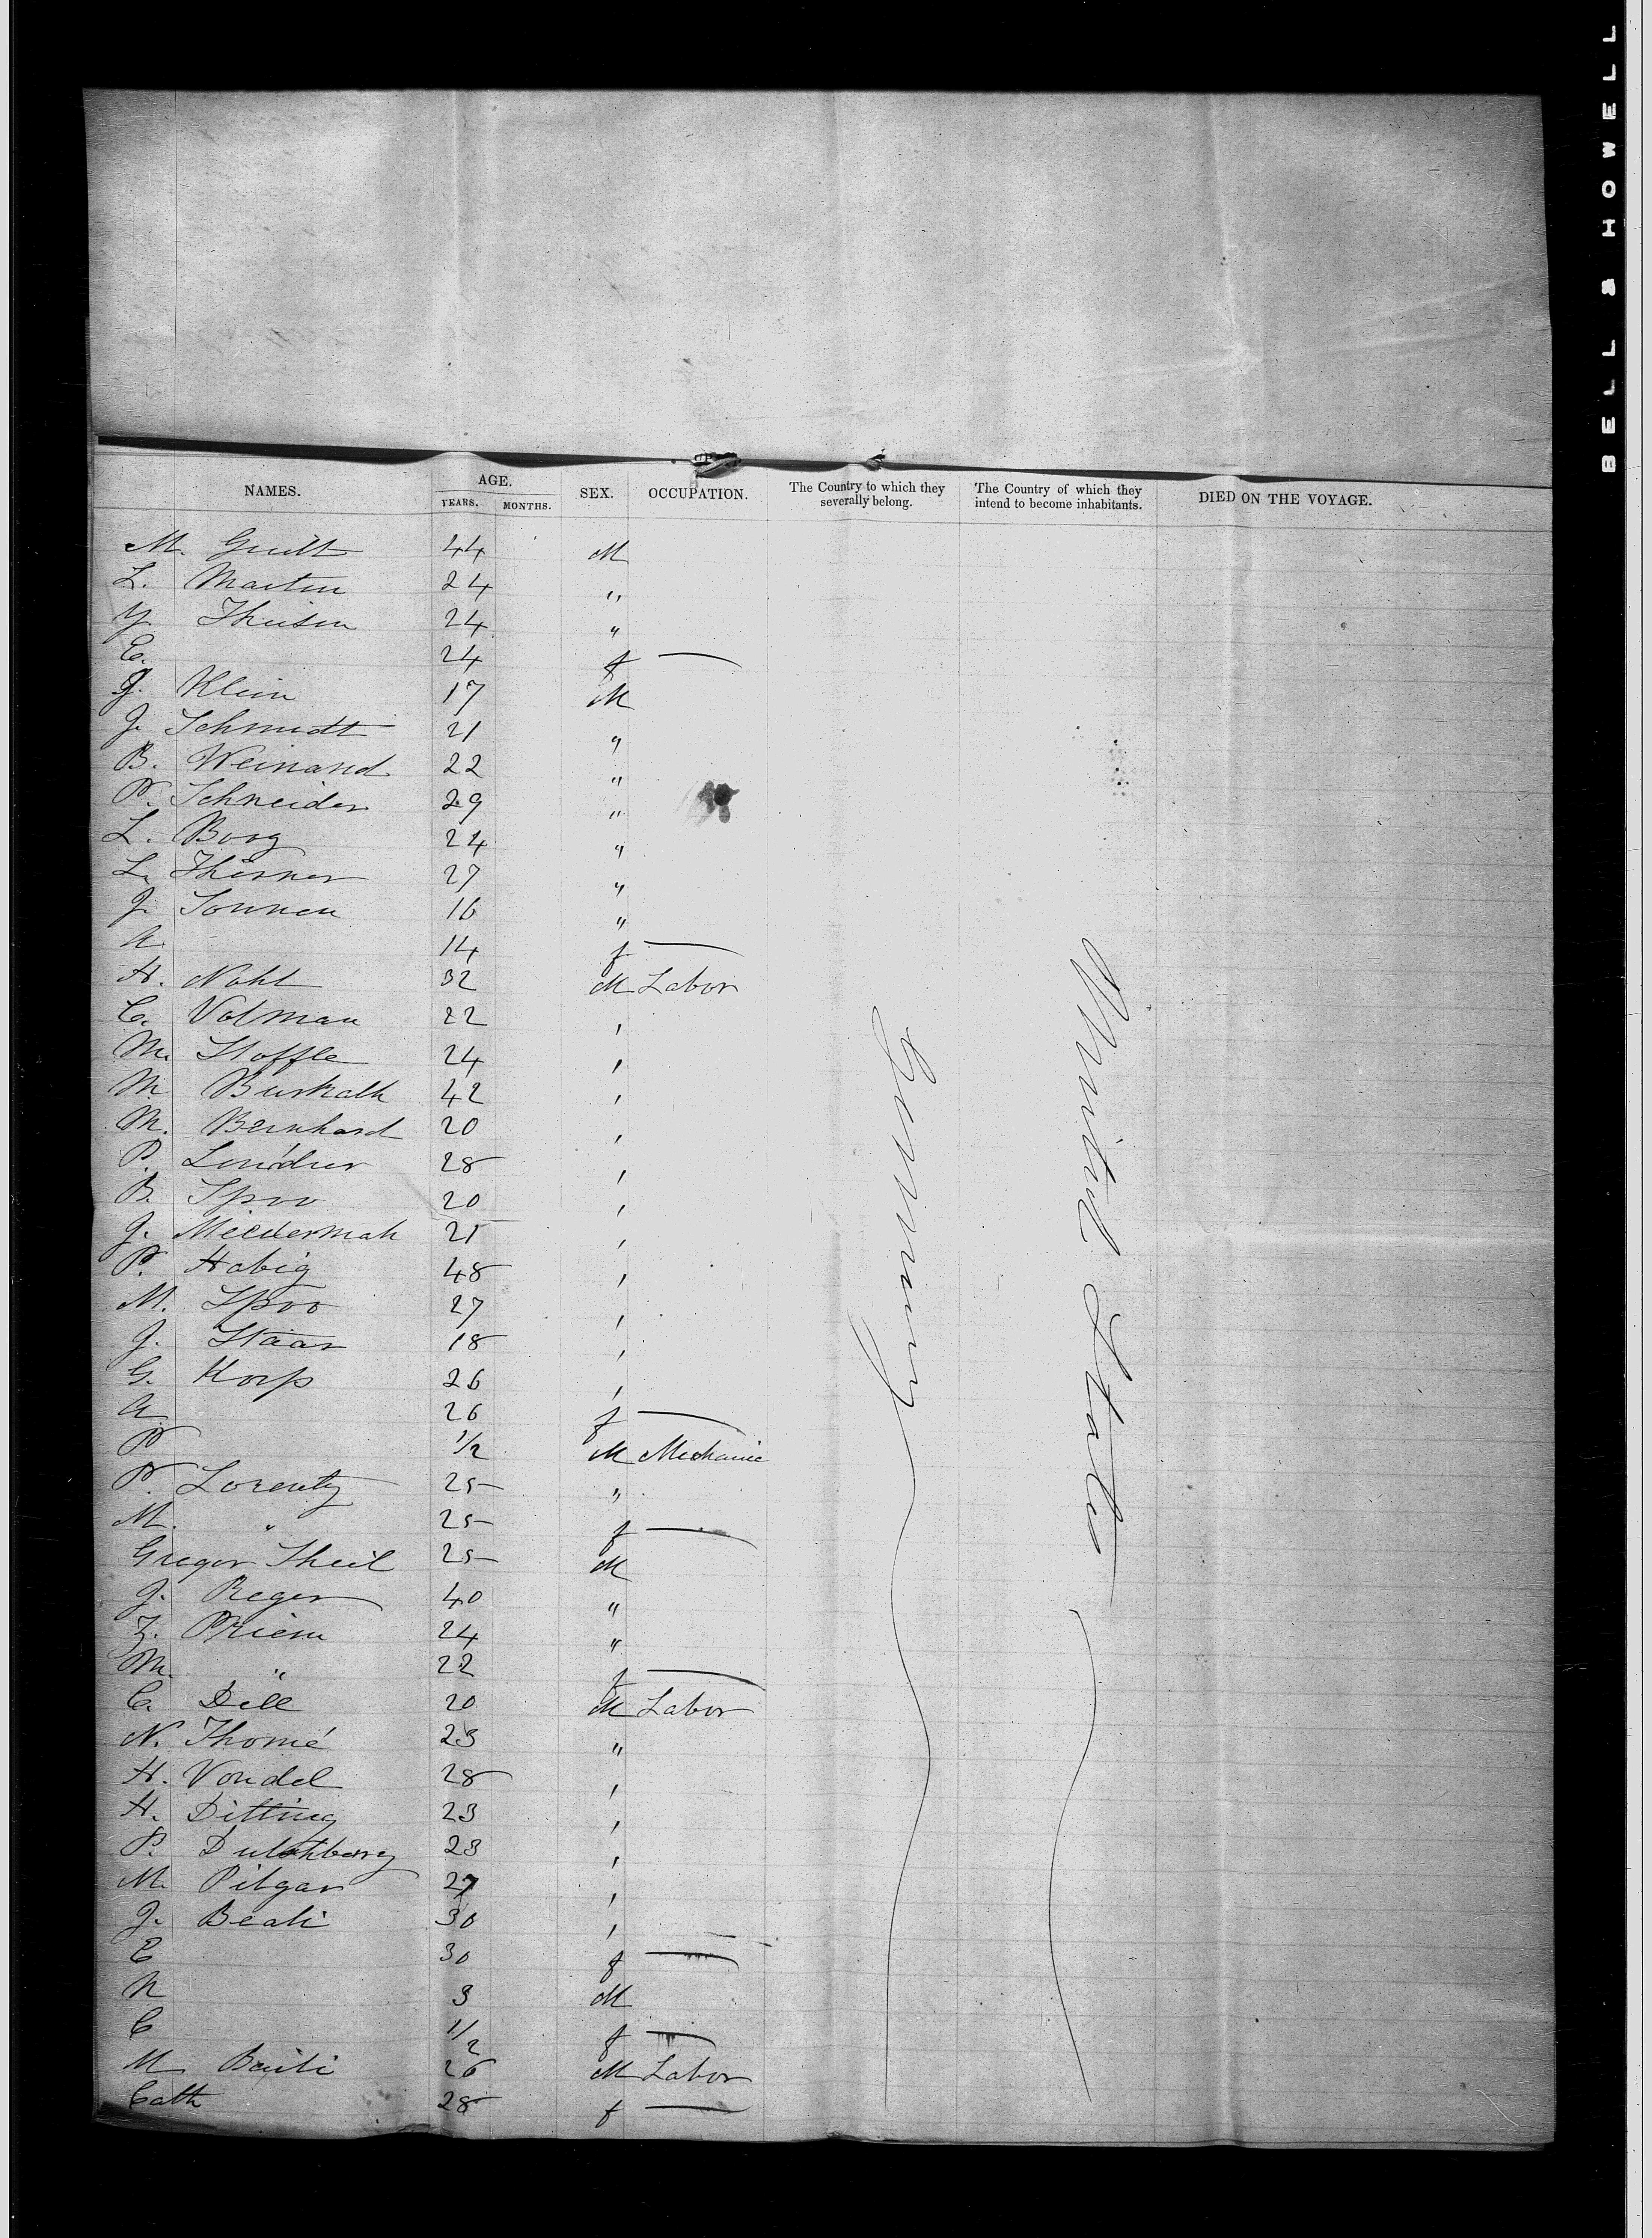 BELL & HOWELL
NAMES. AGE. YEARS. MONTHS. SEX. OCCUPATION. The Country to which they severally belong. The Country of which they intend to become inhabitants. DIED ON THE VOYAGE.
M. 44 M
L. Martin 24 "
Y. Theisen 24 "
E. 24 f —
J. Klein 17 M
J. Schmidt 21 "
B. Weinand 22 "
P. Schneider 29 "
L. Boog 24 "
L. Thirner 27 "
J. Sonnen 16 "
A 14 f —
H. Nohl 32 M Labor
C. Volman 22 "
M. Stoffle 24 "
M. Buskalh 42 "
M. Bernhard 20 "
P. 28 "
B. Spoo 20 "
J. 25 "
P. Habig 48 "
M. Spoo 27 "
J. Staar 18 "
G. Korp 26 "
A 26 f —
P 1/2 M Mechanic
P. Lorentz 25 "
M. " 25 f —
Gregor Theil 25 M
J. Reger 40 "
Z. Priem 24 "
M. " 22 f —
C. Dill 20 M Labor
N. Thomé 23 "
H. Vondel 28 "
H. Ditting 23 "
P. 23 "
M. Pilgar 27 "
J. Beali 30 "
C 30 f —
N 3 M
C 1/2 f —
M 26 M Labor
Cath 28 f —
Germany
United States